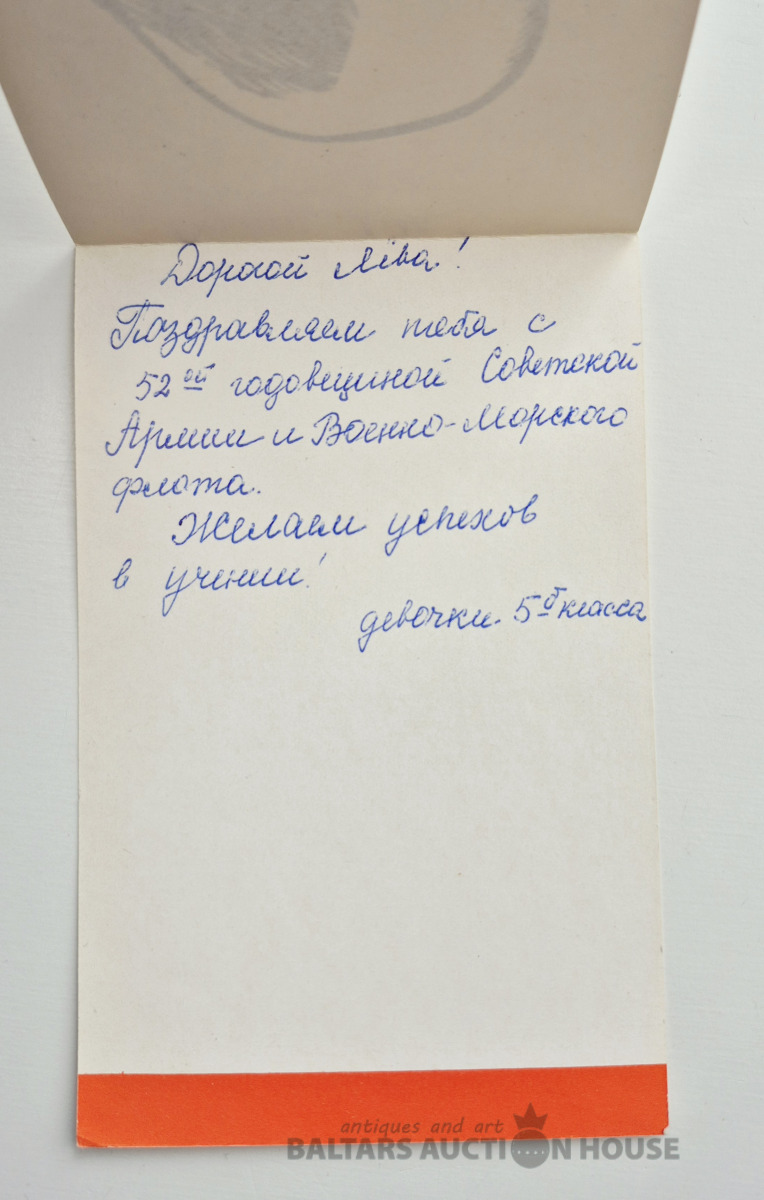 Дорогой Лёва!
Поздравляем тебя с
52ой годовщиной Советской
Армии и Военно-Морского
флота.
Желаем успехов
в учении!
девочки 5б класса
antiques and art
BALTARS AUCTION HOUSE